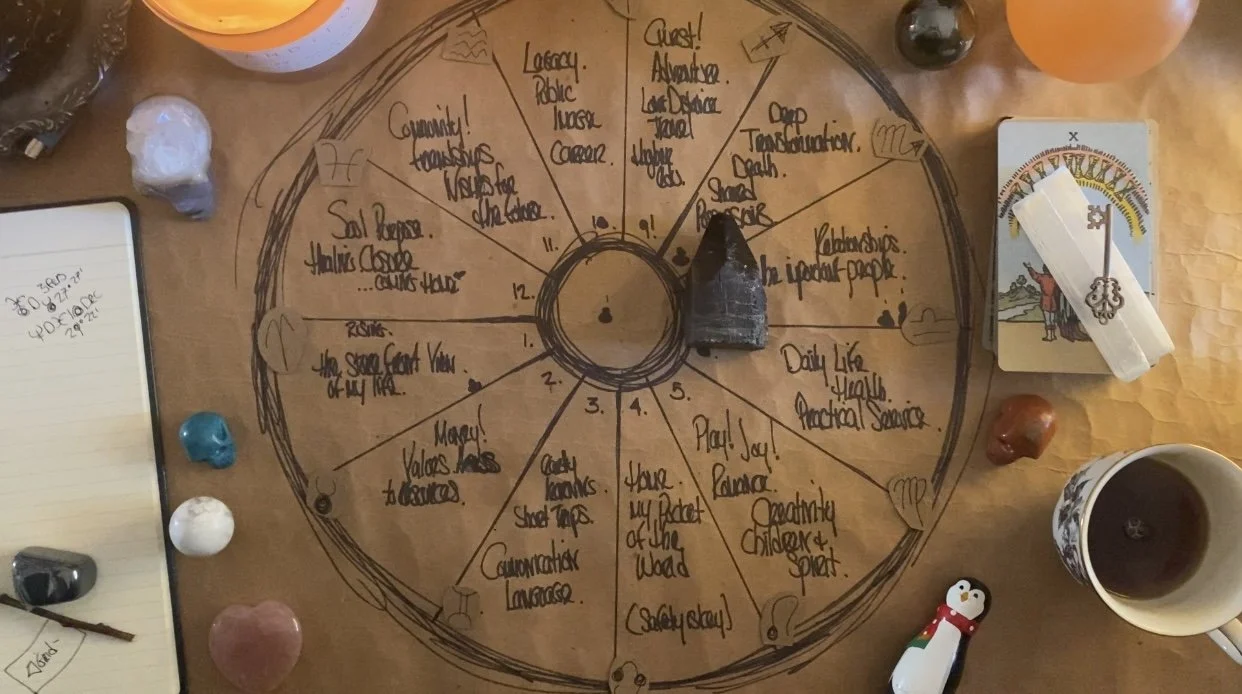 Legacy.
Public
Image
Career.
10.
Quest!
Adventure.
Long Distance
Travel
Higher
Eds.
9!
Deep
Transformation.
Death.
Shared
Possessions
Relationships.
the important people.
Daily Life
Health.
Practical Service.
5.
Play! Joy!
Romance.
Creativity
Children &
Spirit.
4.
Home.
My Pocket
of the
World
(Safety is key)
3.
Early
learnings.
Short Trips.
Communication
Language.
2.
Money!
Values
to Resources.
1.
Rising.
the Street Front View
of my life.
12.
Soul Purpose.
Healing Closure
...coming Home
11.
Community!
friendships
Wishes for
the future.
X